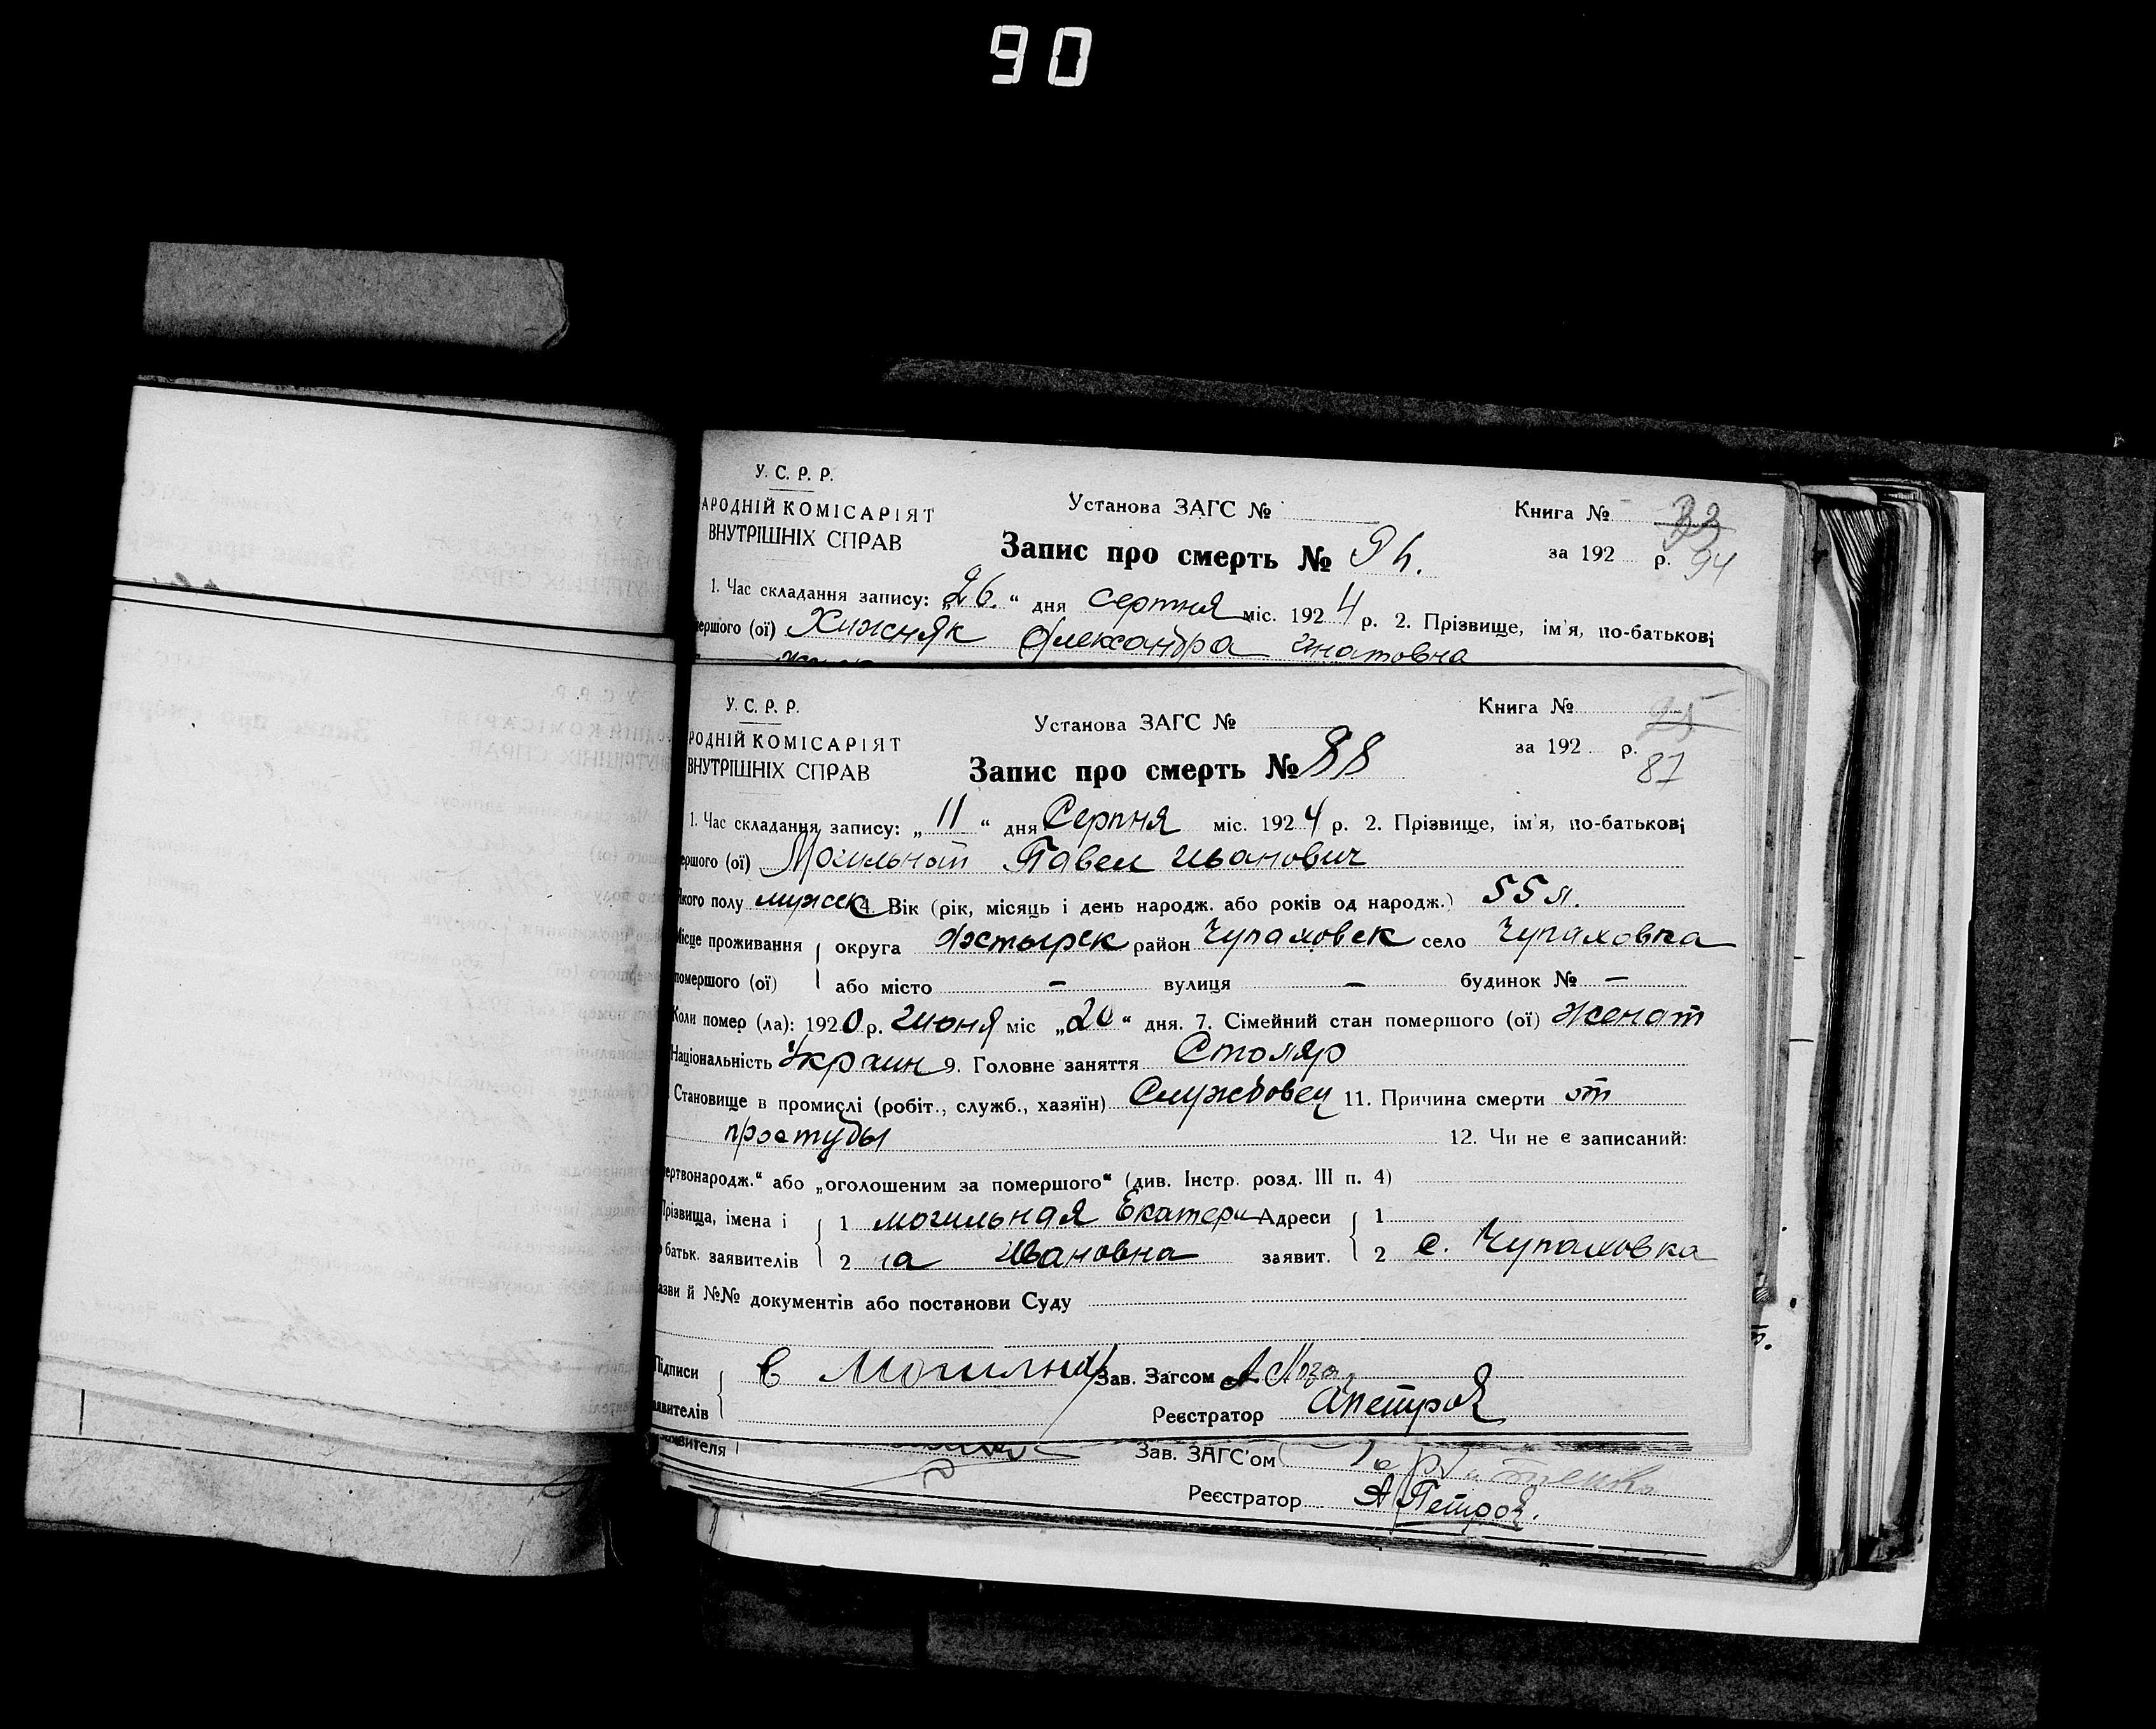 90
У. С. Р. Р.
АРОДНІЙ КОМІСАРІЯТ
ВНУТРІШНІХ СПРАВ
Установа ЗАГС №
Книга № 33
Запис про смерть №
за 192 р. 94
1. Час складання запису: „26.“ дня серпня міс. 1924 р. 2. Прізвище, ім'я, по-батькові
мершого (ої) Хижняк Александра Гнатовна
У. С. Р. Р.
РОДНІЙ КОМІСАРІЯТ
ВНУТРІШНІХ СПРАВ
Установа ЗАГС №
Книга № 25
Запис про смерть № 88
за 192 р.
87
1. Час складання запису: „11“ дня Серпня міс. 1924 р. 2. Прізвище, ім'я, по-батькові
ершого (ої) Могильнот Павел Иванович
Якого полу мужск 4. Вік (рік, місяць і день народж. або років од народж.) 55 л.
Місце проживання округа Охтырск район Чупаховск село Чупаховка
помершого (ої) або місто — вулиця — будинок № —
Коли помер (ла): 1920 р. Июня міс „20“ дня. 7. Сімейний стан помершого (ої) Женат
Національність Украин 9. Головне заняття Столяр
Становище в промислі (робіт., служб., хазяїн) Службовец 11. Причина смерти от
простуды 12. Чи не є записаний:
ертвонародж.“ або „оголошеним за помершого“ (див. Інстр. розд. III п. 4)
Прізвища, імена і 1 могильная Екатери Адреси 1
батьк. заявителів 2 на Ивановна заявит. 2 с. Чупаховка
азви й №№ документів або постанови Суду
Підписи Е Могилная Зав. Загсом
аявителів Реєстратор АПетров
заявителя Зав. ЗАГС'ом
Реєстратор А Петров.